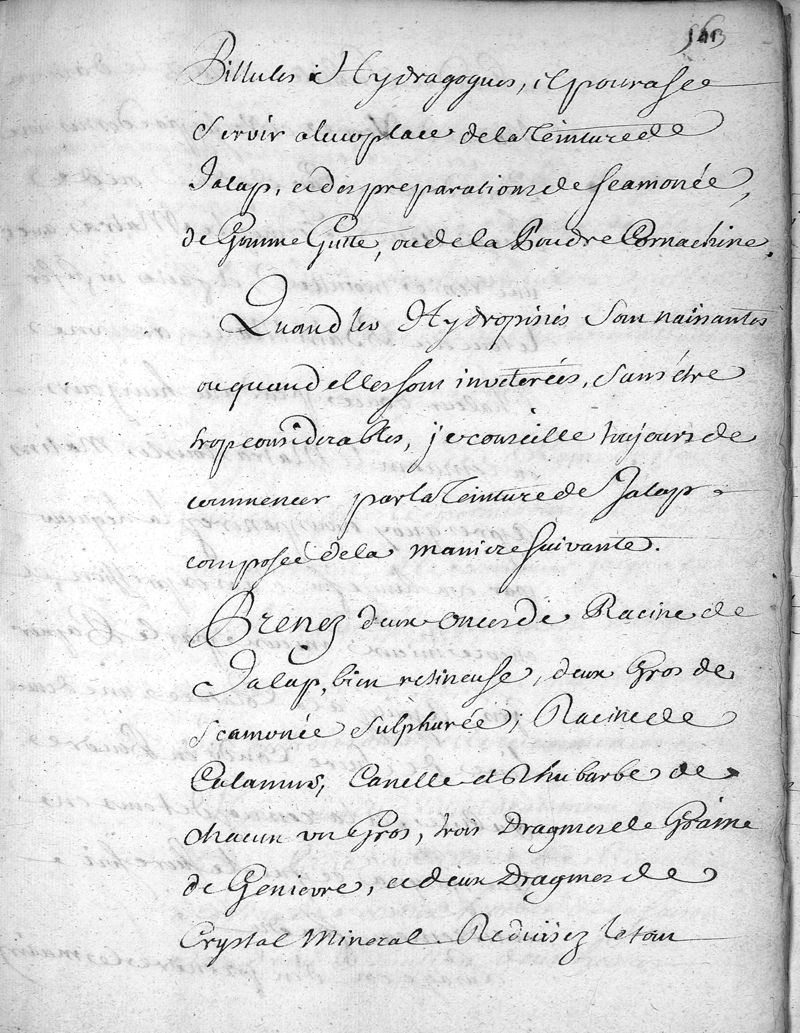 Pillules Hydragogues, il poura sée
servir a leur place de la Teinture de
Jalap, et des preparations de scamonée,
de Gomme Gutte, ou de la Poudre Cornachine.
Quand les Hydropisies sont naissantes
ou quand elles sont inveterées, sans être
trop considerables, je conseille toujours de
commencer par la Teinture de Jalap
composée de la maniere suivante.
Prenez deux onces de Racine de
Jalap, bien resineuse, deux Gros de
scamonée sulphurée; Racine de
Calamus, Canelle et Rhubarbe de
chacun un Gros, trois Dragmes de Graine
de Genievre, et deux Dragmes de
Crystal Mineral. Reduisez le tout